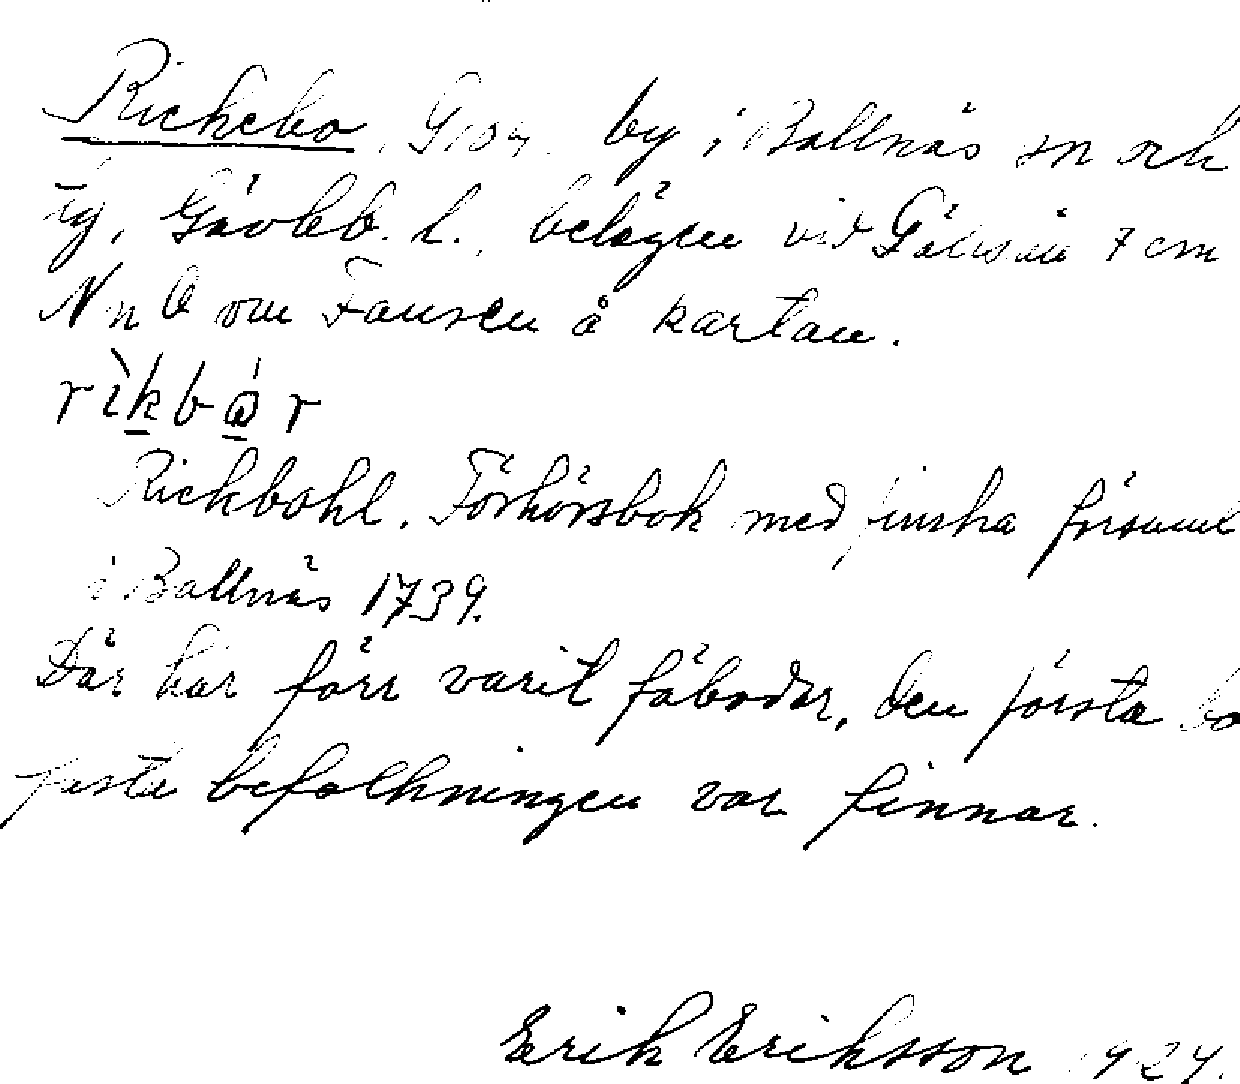 Rickebo, by i Bollnäs sn och
tg, Gävleb. l., belägen vid 7 cm
N n O om Fansen å kartan.
rìkbór
Rickbohl. Förhörsbok med finska församl
i Bollnäs 1739.
Där har förr varit fäbodar, den första bo
fasta befolkningen var finnar.
Erik Eriksson 1924.